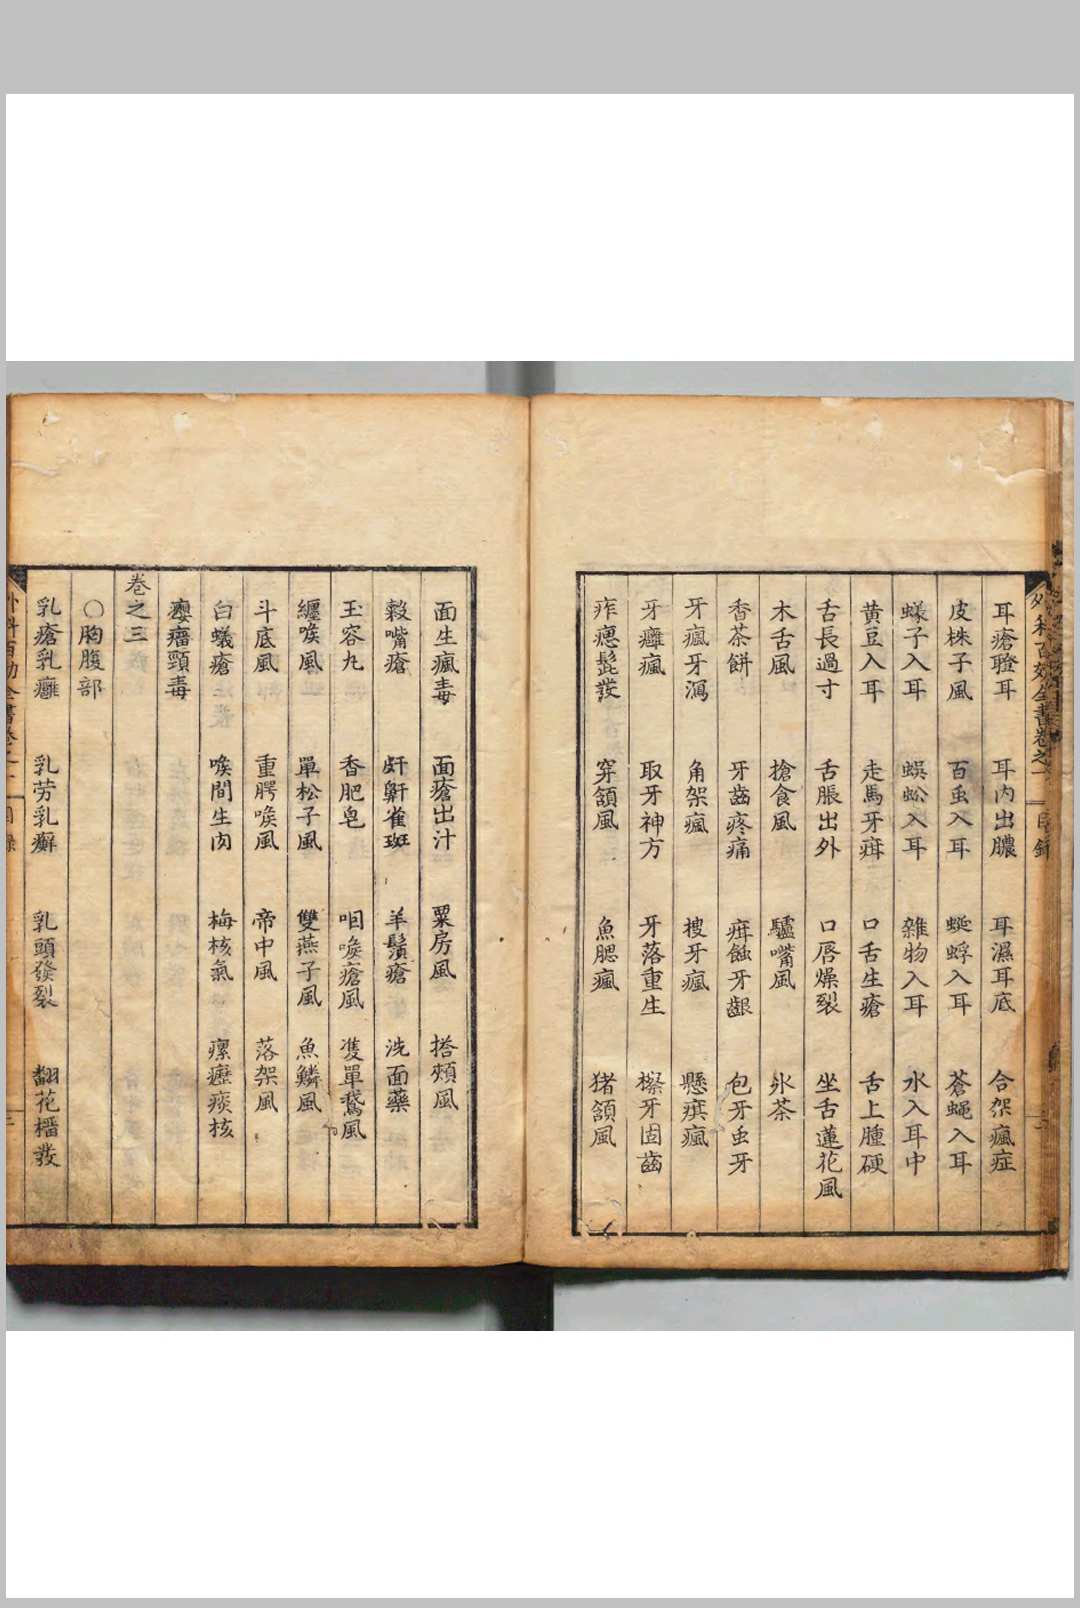 耳瘡聤耳 耳内出膿 耳濕耳底 合架瘋症
皮蛛子風 百虫入耳 蜒蜉入耳 蒼蝇入耳
蟻子入耳 蜈蚣入耳 雜物入耳 水入耳中
黄豆入耳 走馬牙疳 口舌生瘡 舌上腫硬
舌長過寸 舌脹出外 口唇燥裂 坐舌蓮花風
木舌風 搶食風 驢嘴風 氷茶
香茶餅 牙齒疼痛 疳蝕牙齦 包牙虫牙
牙瘋牙瀉 角架瘋 搜牙瘋 懸瘼瘋
牙癰瘋 取牙神方 牙落重生 櫸牙固齒
痄瘜髭發 穿頷風 魚腮瘋 猪頷風
面生瘋毒 面瘡出汁 粟房風 搭頰風
穀嘴瘡 皯鼾雀斑 羊鬚瘡 洗面藥
玉容丸 香肥皂 咽喉瘡風 雙單鵞風
纏喉風 單松子風 雙燕子風 魚鱗風
斗底風 重腭喉風 帝中風 落架風
白蟻瘡 喉間生肉 梅核氣 瘰癧痰核
癭瘤頸毒
卷之三
○胸腹部
乳瘡乳癰 乳劳乳癬 乳頭發裂 翻花橊發
外科百効全書卷之一 目錄